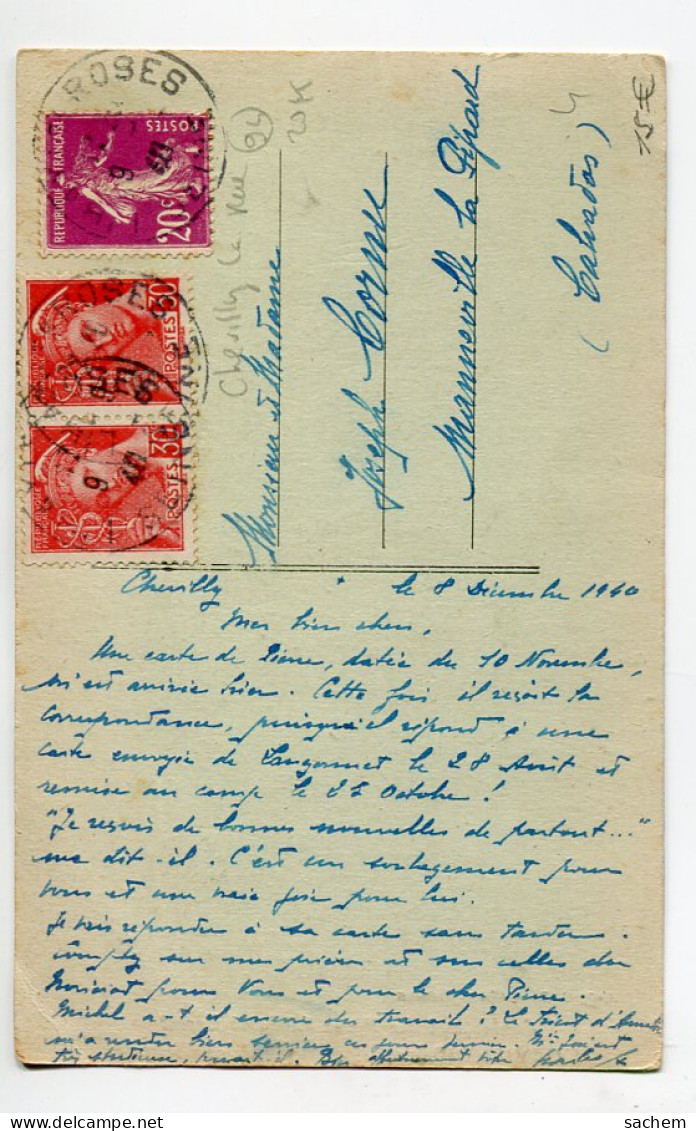 ROSES
REPUBLIQUE FRANCAISE
POSTES
20c
30
POSTES
30
POSTES
Chevilly La Rue (94)
20K
15€
Monsieur et Madame
Joseph Cornu
Manneville la Pipard
(Calvados)
Chevilly le 8 Décembre 1940
Mes biens chers,
Une carte de Pierre, datée du 10 Novembre,
m'est arrivée hier. Cette fois il reçoit la
correspondance, puisqu'il répond à une
carte envoyée de Langonnet le 28 Août et
remise au camp le 22 Octobre !
"Je reçois de bonnes nouvelles de partout..."
me dit-il. C'est un soulagement pour
vous et une vraie joie pour lui.
Je vais répondre à sa carte sans tarder.
Comptez sur mes prières et sur celles du
Noviciat pour Vous et pour le cher Pierre.
Michel a-t-il encore du travail ? Le Tricot d'
m'a rendu bien service ces jours
sachem
delcampe.net